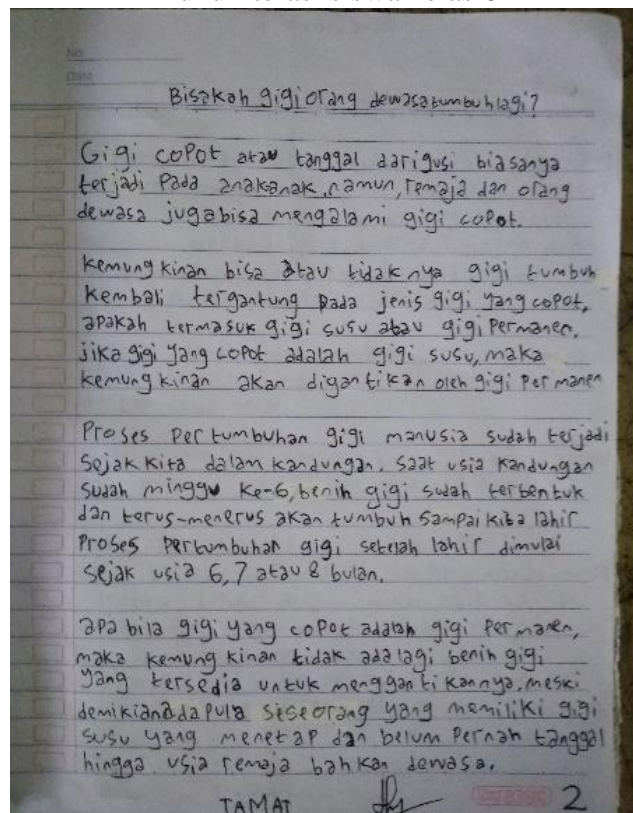 No.
Date
Bisakah gigi orang dewasa tumbuh lagi?
Gigi copot atau tanggal dari gusi biasanya
terjadi pada anakanak, namun, remaja dan orang
dewasa juga bisa mengalami gigi copot.
kemungkinan bisa atau tidaknya gigi tumbuh
kembali tergantung pada jenis gigi yang copot,
apakah termasuk gigi susu atau gigi permanen.
jika gigi yang copot adalah gigi susu, maka
kemungkinan akan digantikan oleh gigi permanen
Proses pertumbuhan gigi manusia sudah terjadi
sejak kita dalam kandungan. saat usia kandungan
sudah minggu ke-6, benih gigi sudah terbentuk
dan terus-menerus akan tumbuh sampai kita lahir
Proses pertumbuhan gigi setelah lahir dimulai
sejak usia 6,7 atau 8 bulan.
apabila gigi yang copot adalah gigi permanen,
maka kemungkinan tidak ada lagi benih gigi
yang tersedia untuk menggantikannya, meski
demikian ada pula seseorang yang memiliki gigi
susu yang menetap dan belum pernah tanggal
hingga usia remaja bahkan dewasa.
TAMAT 2